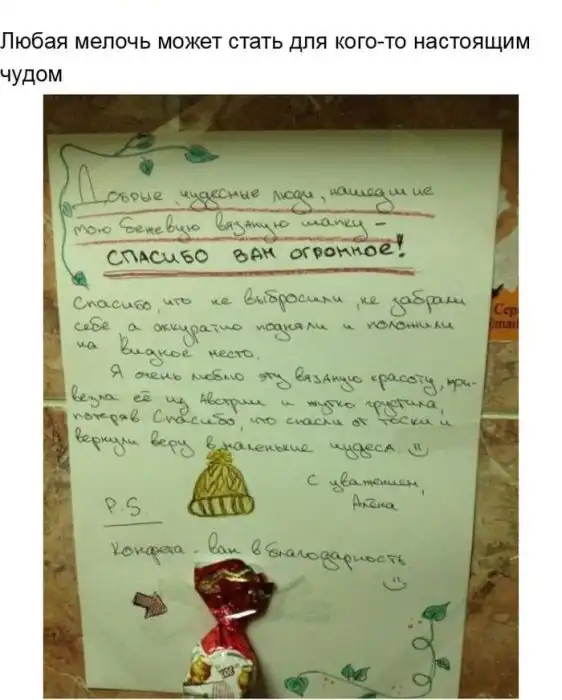 Любая мелочь может стать для кого-то настоящим
чудом
Добрые, чудесные люди, нашедшие
мою бежевую вязаную шапку –
СПАСИБО ВАМ ОГРОМНОЕ!
Спасибо, что не выбросили, не забрали
себе, а аккуратно подняли и положили
на видное место.
Я очень люблю эту вязаную красоту, при-
везла её из Австрии и жутко грустила,
потеряв. Спасибо, что спасли от тоски и
вернули веру в маленькие чудеса.
С уважением,
Алёна
P.S.
Конфета – вам в благодарность
Сер